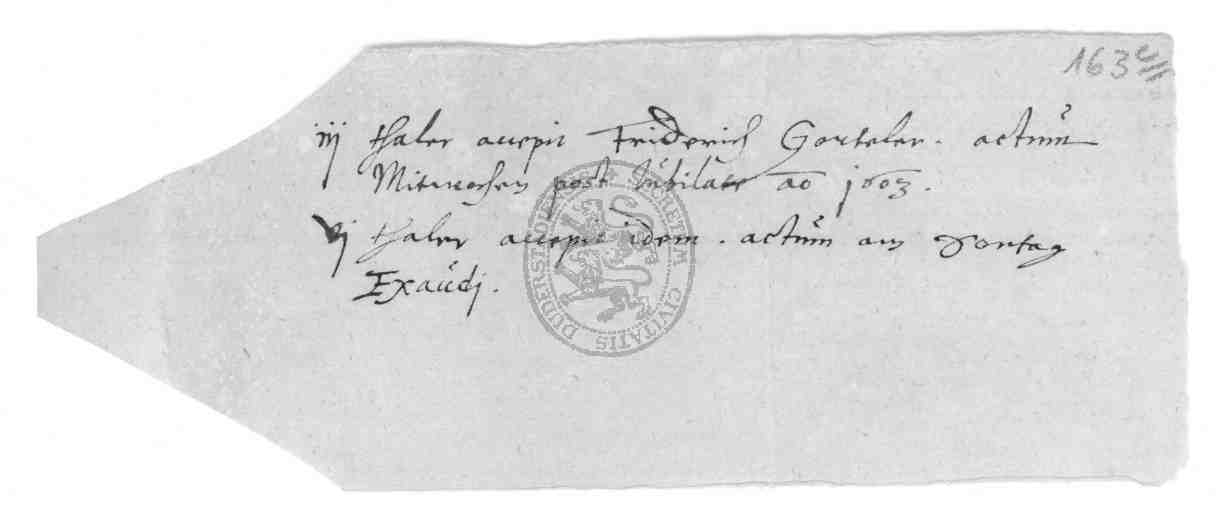 163e
iij thaler accepit Friderich Gorteler. actum
Mitwochen post Jubilate ao 1603.
vj thaler accepit idem. actum am Sontag
Exaudj.
SECRETUM CIVITATIS DUDERSTADENSIS